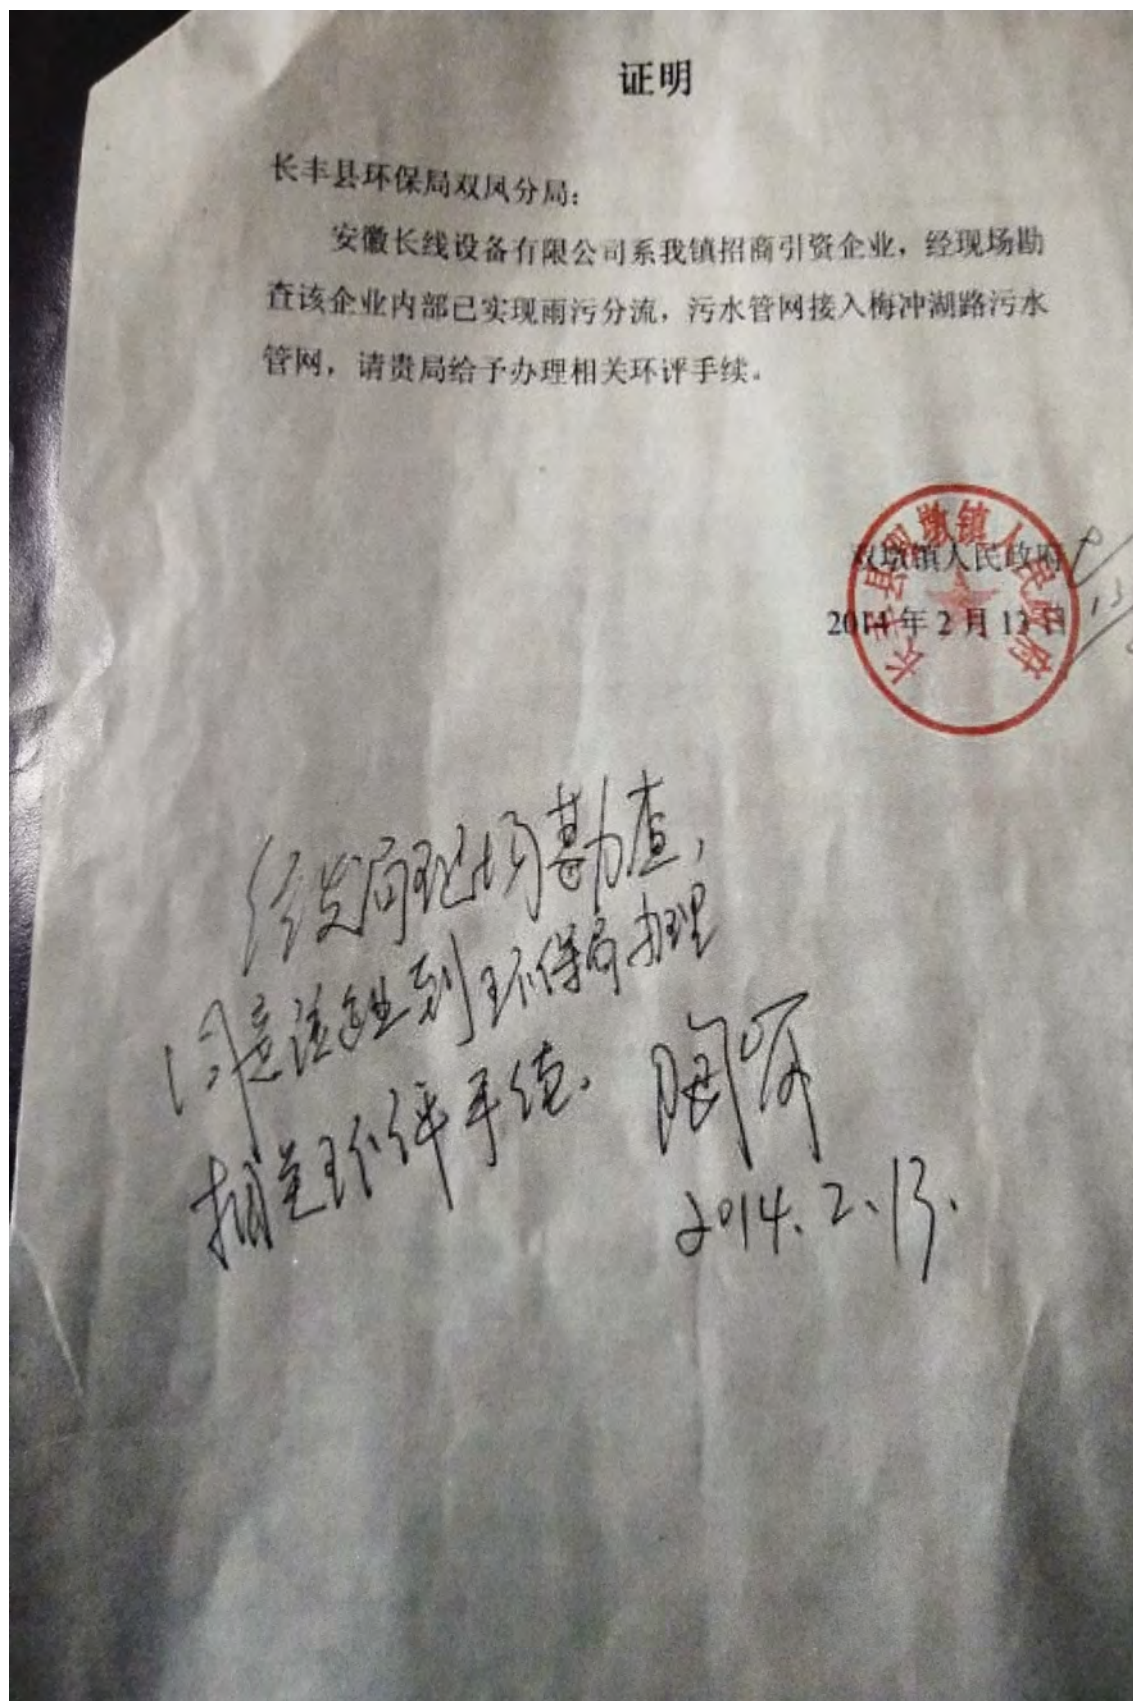 证明
长丰县环保局双凤分局：
安徽长线设备有限公司系我镇招商引资企业，经现场勘
查该企业内部已实现雨污分流，污水管网接入梅冲湖路污水
管网，请贵局给予办理相关环评手续。
长丰县双墩镇人民政府
双墩镇人民政府
2014年2月13日
经发局现场勘查，
同意该企业到环保局办理
相关环评手续。
2014.2.13.